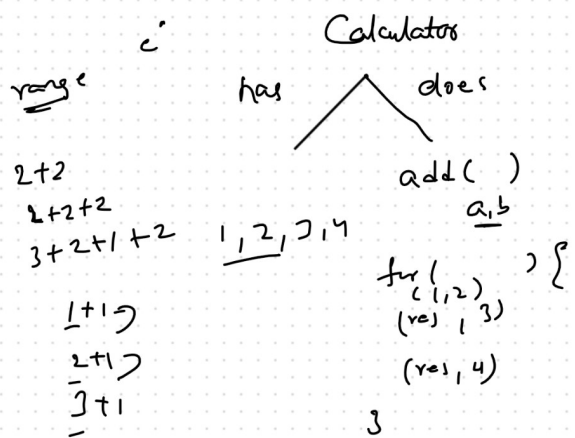 Calculator
range
has
does
2+2
2+2+2
3+2+1+2
1, 2, 3, 4
add( )
a, b
for( ) {
(1, 2)
(res, 3)
(res, 4)
}
1+1
2+1
3+1